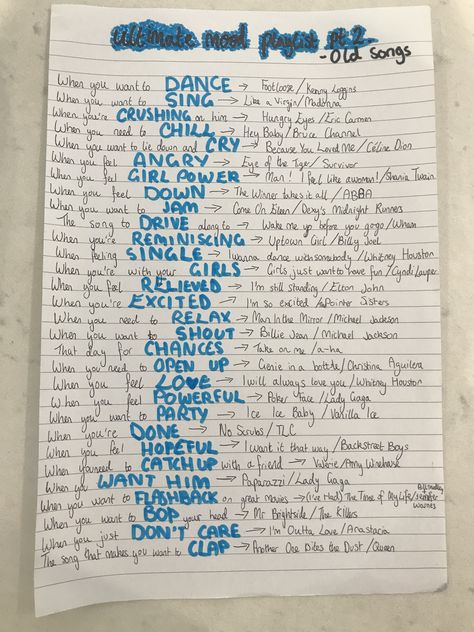 Ultimate mood playlist pt 2
- Old Songs
When you want to DANCE → Footloose / Kenny Loggins
When you want to SING → Like a Virgin / Madonna
When you're CRUSHING on him → Hungry Eyes / Eric Carmen
When you need to CHILL → Hey Baby / Bruce Channel
When you want to lie down and CRY → Because You Loved Me / Céline Dion
When you feel ANGRY → Eye of the Tiger / Survivor
When you feel GIRL POWER → Man! I feel like a woman! / Shania Twain
When you feel DOWN → The Winner takes it all / ABBA
When you want to JAM → Come On Eileen / Dexy's Midnight Runners
The song to DRIVE along to → Wake me up before you gogo / Wham
When you're REMINISCING → Uptown Girl / Billy Joel
When feeling SINGLE → I wanna dance with somebody / Whitney Houston
When you're with your GIRLS → Girls just want to have fun / Cyndi Lauper
When you feel RELIEVED → I'm still standing / Elton John
When you're EXCITED → I'm so excited / Pointer Sisters
When you need to RELAX → Man In the Mirror / Michael Jackson
When you want to SHOUT → Billie Jean / Michael Jackson
That day for CHANCES → Take on me / a-ha
When you need to OPEN UP → Genie in a bottle / Christina Aguilera
When you feel LOVE → I will always love you / Whitney Houston
When you feel POWERFUL → Poker Face / Lady Gaga
When you want to PARTY → Ice Ice Baby / Vanilla Ice
When you're DONE → No Scrubs / TLC
When you feel HOPEFUL → I want it that way / Backstreet Boys
When you need to CATCH UP with a friend → Valerie / Amy Winehouse
When you WANT HIM → Paparazzi / Lady Gaga
When you want to FLASHBACK on great movies → (I've Had) The Time of My Life / Bill Medley / Jennifer Warnes
When you want to BOP your head → Mr Brightside / The Killers
When you just DON'T CARE → I'm Outta Love / Anastacia
The song that makes you want to CLAP → Another One Bites the Dust / Queen